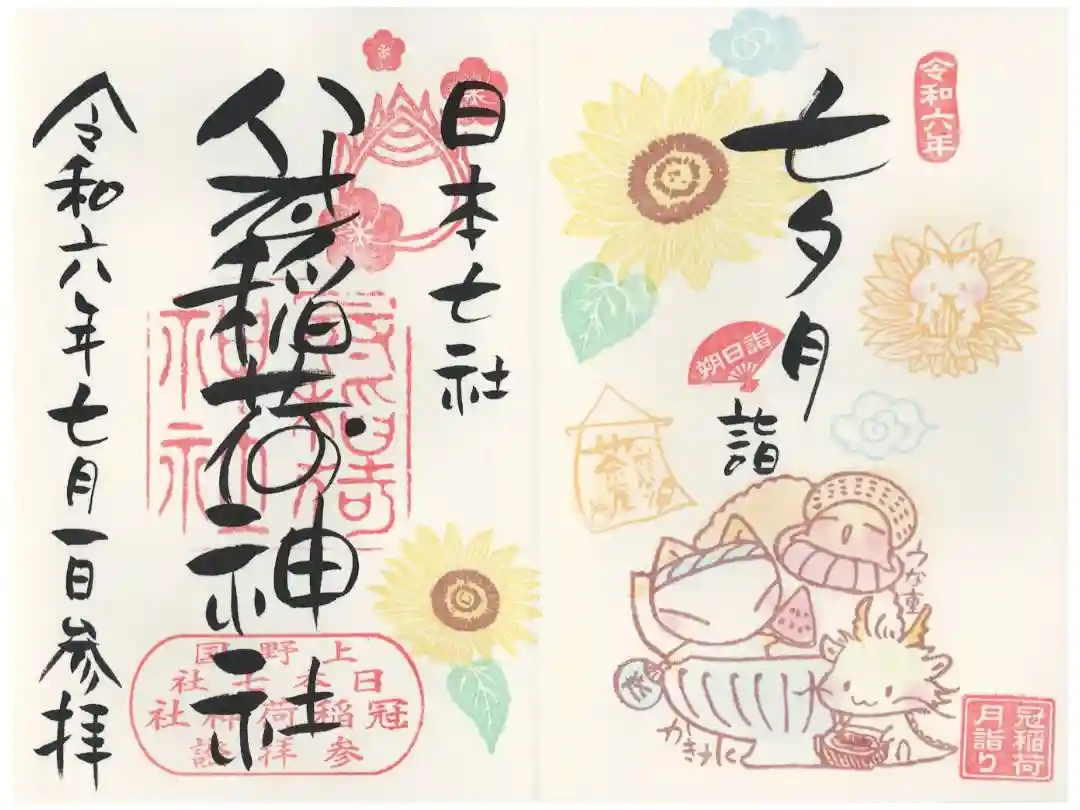 令和六年
七夕月
詣
朔日詣
うな重
冠稲荷
月詣り
日本七社
冠稲荷神社
令和六年七月一日参拝
冠稲荷
神社
上野国
日本七社
冠稲荷神社
参拝証